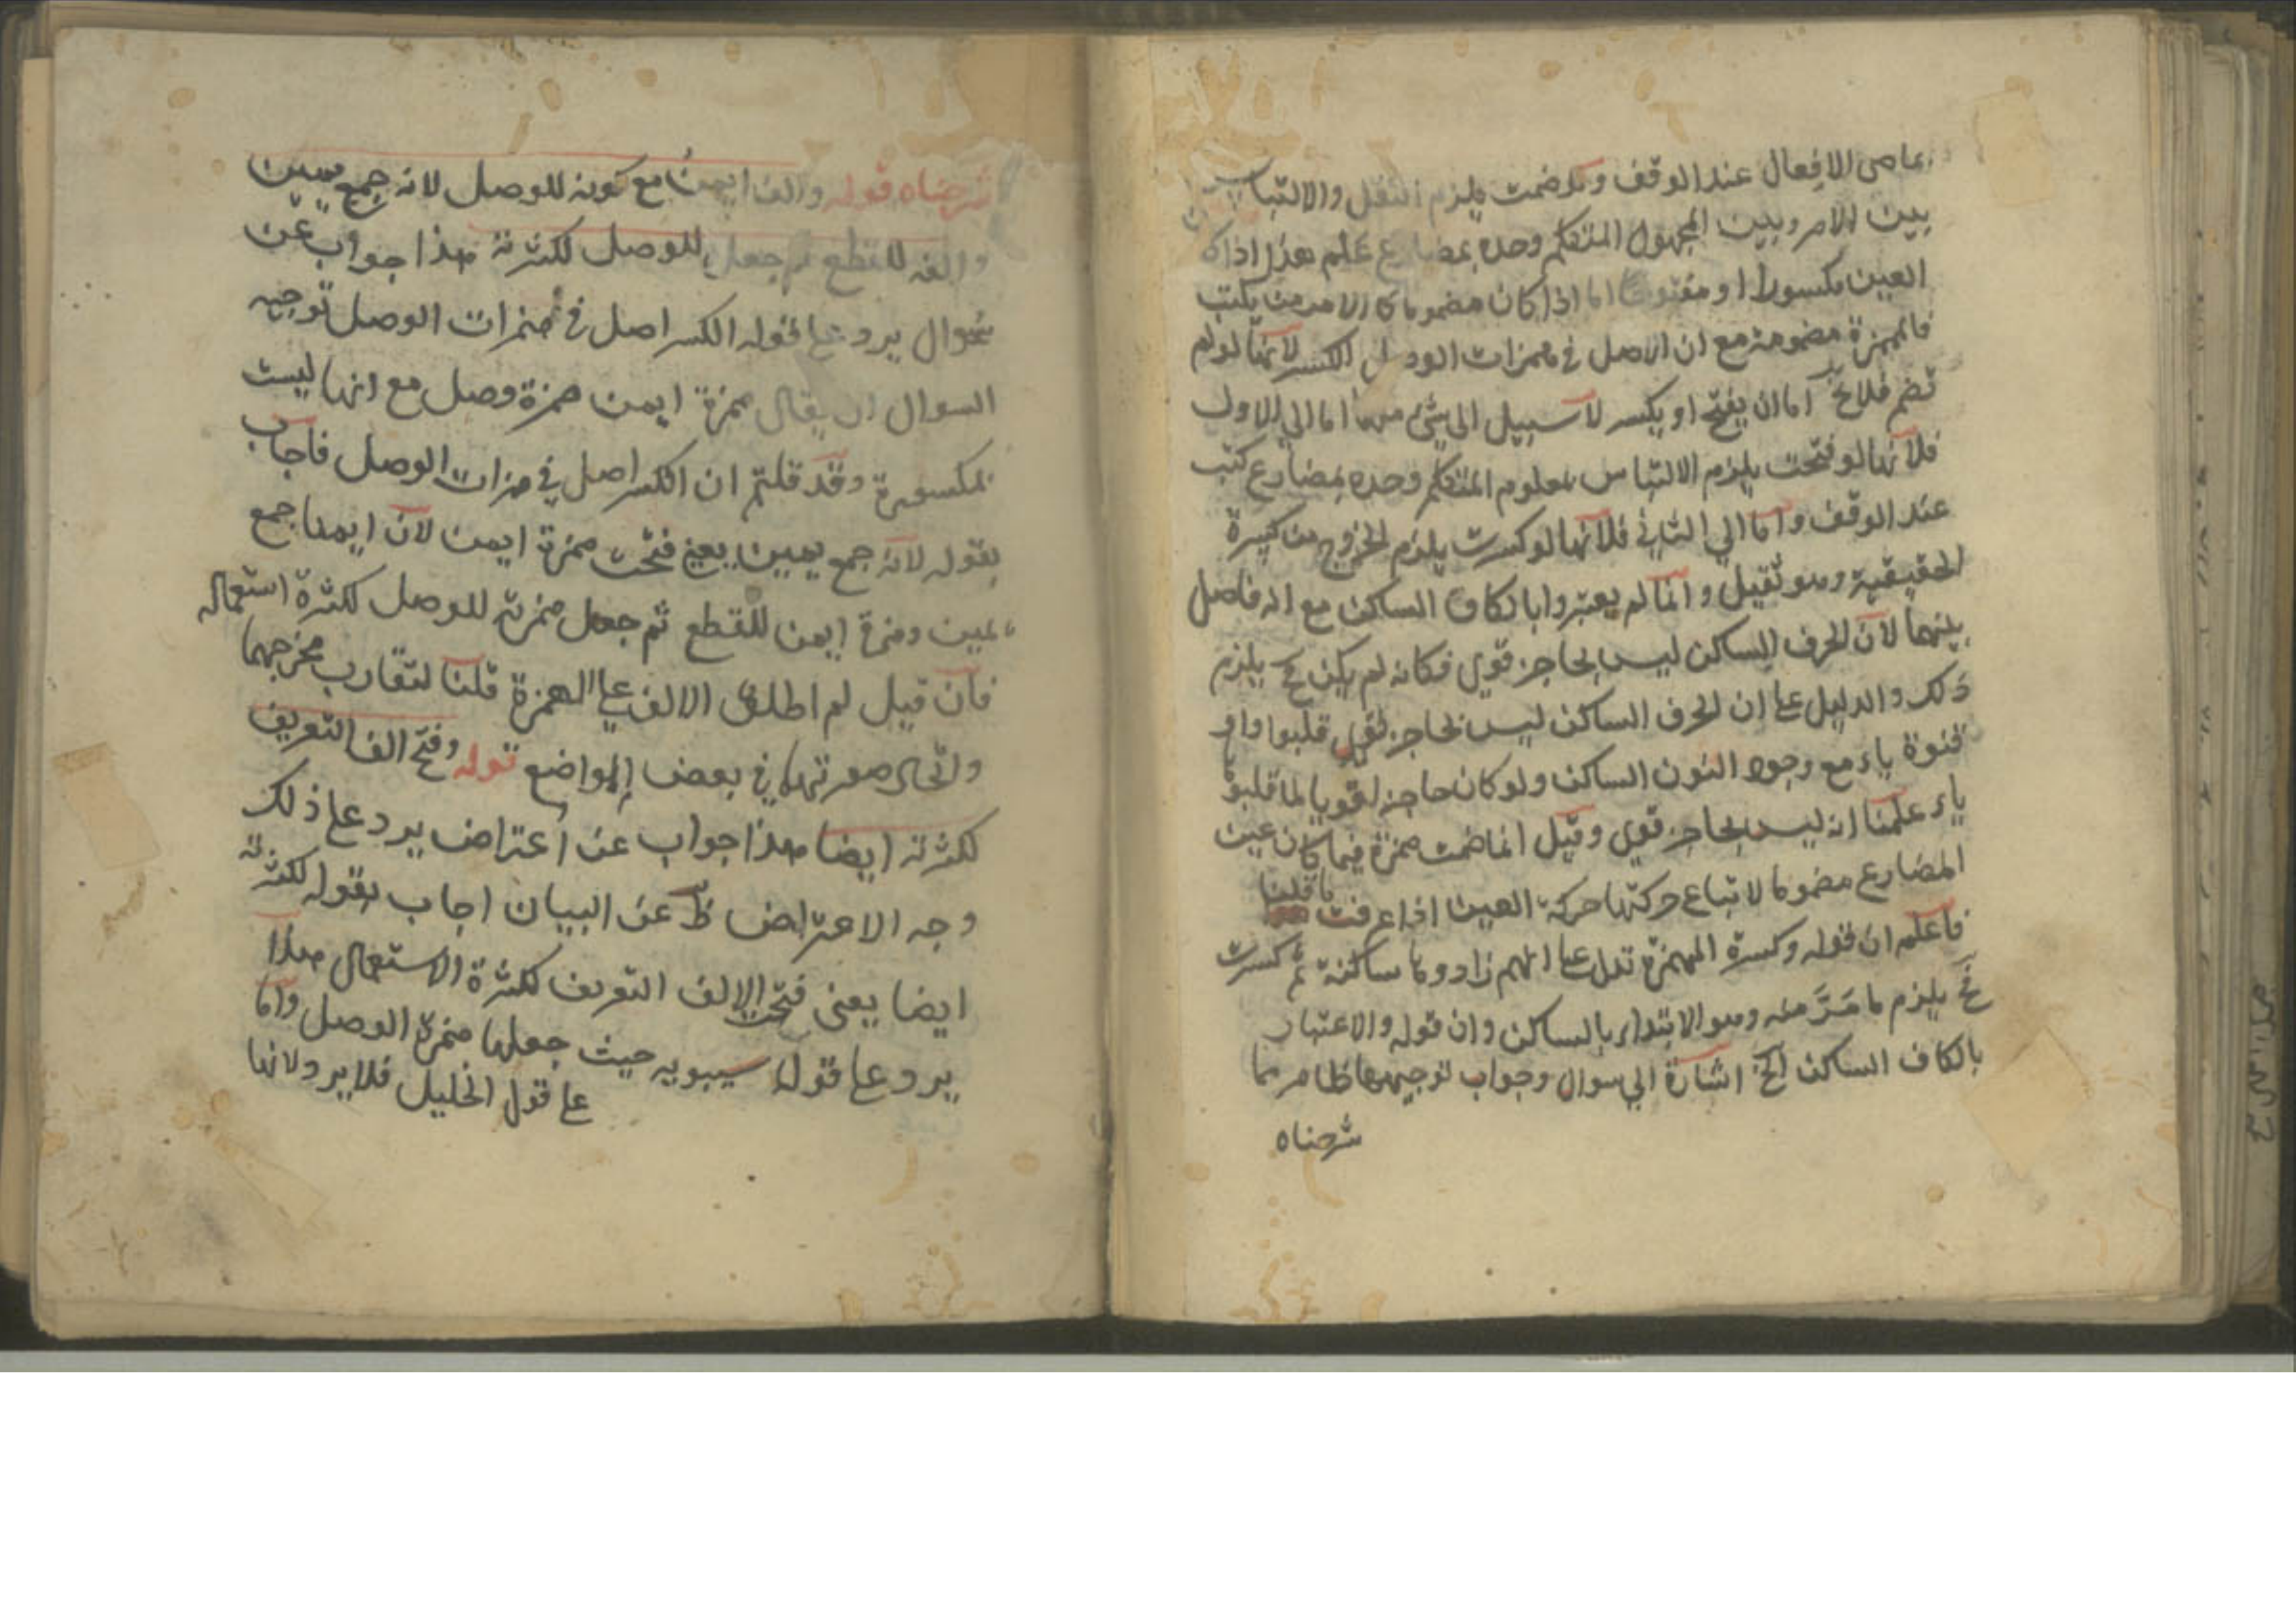 بماضى الافعال عند الوقف ولو ضمت يلزم الثقل والالتباس
بين الامر وبين المجهول المتكلم وحده بمضارع علم هذا اذا كان
العين مكسورا او مفتوحا اما اذا كان مضموما كالامر من يكتب
فالهمزة مضمومة مع ان الاصل في همزات الوصل الكسر لانها لو لم
تضم فلا يخ اما ان يفتح او يكسر لا سبيل الى شئ منهما اما الي الاول
فلانها لو فتحت يلزم الالتباس بمعلوم المتكلم وحده بمضارع كتب
عند الوقف واما الي الثاني فلانها لو كسرت يلزم الخروج من كسرة
الحقيقية وهو ثقيل وانما لم يعتبروا بالكاف الساكن مع انه فاصل
بينهما لان الحرف الساكن ليس بحاجز قوي فكانه لم يكن ح يلزم
ذلك والدليل على ان الحرف الساكن ليس بحاجز قوي قلبوا واو
قنوة ياء مع وجود النون الساكن ولو كان حاجزا قويا لما قلبوا
ياء علمنا انه ليس بحاجز قوي وقيل انما ضمت همزة فيما كان عين
المضارع مضموما لاتباع حركتها حركة العين اذا عرفت ما قلنا
فاعلم ان قوله وكسرة الهمزة تدل على انهم زادوها ساكنة ثم كسرت
ح يلزم ما فر منه وهو الابتداء بالساكن وان قوله والاعتبار
بالكاف الساكن الخ اشارة الي سوال وجواب توجيههما ظاهر مما
شرحناه
شرحناه قوله والف ايمن مع كونه للوصل لانه جمع يمين
والفه للقطع ثم جعل للوصل لكثرته هذا جواب عن
سوال يرد على قوله الكسر اصل في همزات الوصل توجيه
السوال ان يقال همزة ايمن همزة وصل مع انها ليست
بمكسورة وقد قلتم ان الكسر اصل في همزات الوصل فاجاب
بقوله لانه جمع يمين يعني فتحت همزة ايمن لان ايمنا جمع
يمين وهمزة ايمن للقطع ثم جعل همزته للوصل لكثرة استعماله
فان قيل لم اطلق الالف على الهمزة قلنا لتقارب مخرجهما
واتحاد صورتهما في بعض المواضع قوله وفتح الف التعريف
لكثرته ايضا هذا جواب عن اعتراض يرد على ذلك
وجه الاعتراض ظ عن البيان اجاب بقوله لكثرته
ايضا يعنى فتحت الالف التعريف لكثرة الاستعمال هذا
يرد على قول سيبويه حيث جعلها همزة الوصل واما
على قول الخليل فلا يرد لانها